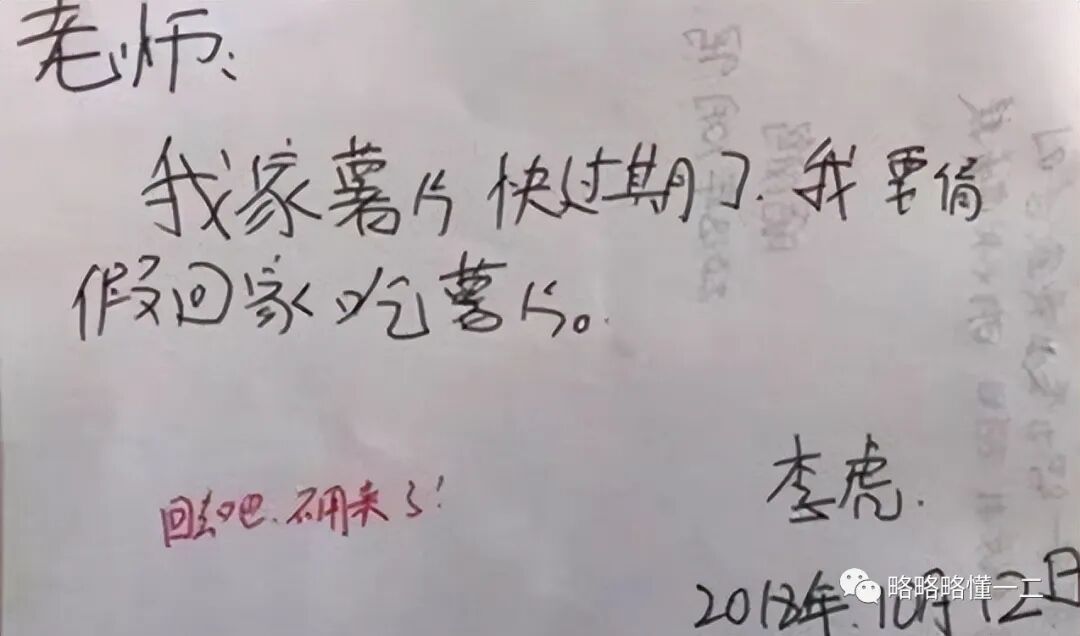 老师:
我家薯片快过期了.我要请
假回家吃薯片。
回去吧.不用来了!
李虎.
2018年.10月12日
略略略懂一二